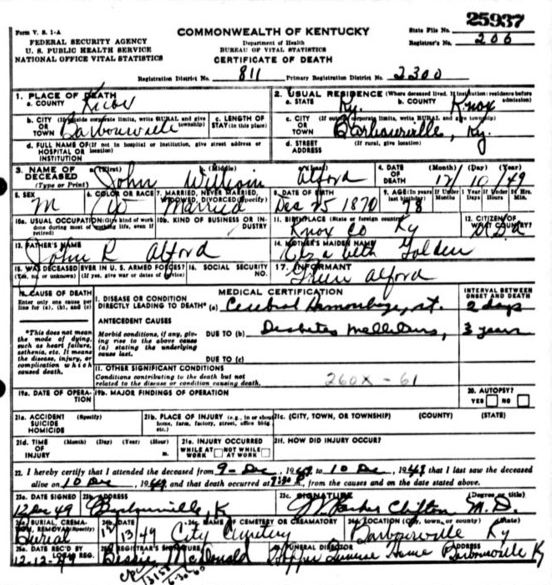 25937
Form V. S. 1-A
COMMONWEALTH OF KENTUCKY
State File No.
FEDERAL SECURITY AGENCY
U. S. PUBLIC HEALTH SERVICE
NATIONAL OFFICE VITAL STATISTICS
Department of Health
BUREAU OF VITAL STATISTICS
CERTIFICATE OF DEATH
Registrar's No. 206
Registration District No. 811 Primary Registration District No. 2300
1. PLACE OF DEATH
a. COUNTY Knox
2. USUAL RESIDENCE (Where deceased lived. If institution: residence before admission)
a. STATE Ky. b. COUNTY Knox
b. CITY (If outside corporate limits, write RURAL and give township)
OR TOWN Barbourville
c. LENGTH OF STAY (in this place)
c. CITY (If outside corporate limits, write RURAL and give township)
OR TOWN Barbourville, Ky.
d. FULL NAME OF (If not in hospital or institution, give street address or location)
HOSPITAL OR INSTITUTION
d. STREET ADDRESS (If rural, give location)
3. NAME OF DECEASED (Type or Print)
a. (First) b. (Middle) c. (Last)
John William Alford
4. DATE OF DEATH (Month) (Day) (Year)
12/10/49
5. SEX M
6. COLOR OR RACE W
7. MARRIED, NEVER MARRIED, WIDOWED, DIVORCED (Specify) Married
8. DATE OF BIRTH Dec 25 1870
9. AGE (In years last birthday) 78
10a. USUAL OCCUPATION (Give kind of work done during most of working life, even if retired)
10b. KIND OF BUSINESS OR INDUSTRY
11. BIRTHPLACE (State or foreign country) Knox Co Ky
12. CITIZEN OF WHAT COUNTRY?
13. FATHER'S NAME
John R Alford
14. MOTHER'S MAIDEN NAME
Elizabeth Golden
15. WAS DECEASED EVER IN U. S. ARMED FORCES?
(Yes, no, or unknown) (If yes, give war or dates of service)
16. SOCIAL SECURITY NO.
17. INFORMANT
Alford
18. CAUSE OF DEATH
Enter only one cause per line for (a), (b), and (c)
MEDICAL CERTIFICATION
INTERVAL BETWEEN ONSET AND DEATH
I. DISEASE OR CONDITION DIRECTLY LEADING TO DEATH* (a) Cerebral Hemorrhage, rt. 2 days
ANTECEDENT CAUSES
*This does not mean the mode of dying, such as heart failure, asthenia, etc. It means the disease, injury, or complication which caused death.
Morbid conditions, if any, giving rise to the above cause (a) stating the underlying cause last.
DUE TO (b) Diabetes Mellitus, 3 years
DUE TO (c)
II. OTHER SIGNIFICANT CONDITIONS
Conditions contributing to the death but not related to the disease or condition causing death.
260X-61
19a. DATE OF OPERATION
19b. MAJOR FINDINGS OF OPERATION
20. AUTOPSY?
YES NO
21a. ACCIDENT SUICIDE HOMICIDE
21b. PLACE OF INJURY (e.g., in or about home, farm, factory, street, office bldg., etc.)
21c. (CITY, TOWN, OR TOWNSHIP) (COUNTY) (STATE)
21d. TIME OF INJURY (Month) (Day) (Year) (Hour)
21e. INJURY OCCURRED
WHILE AT WORK NOT WHILE AT WORK
21f. HOW DID INJURY OCCUR?
22. I hereby certify that I attended the deceased from 9-Dec, 1949 to 10 Dec, 1949 that I last saw the deceased
alive on 10 Dec, 1949 and that death occurred at m., from the causes and on the date stated above.
23a. DATE SIGNED 12 Dec 49
23b. ADDRESS Barbourville, K
23c. SIGNATURE (Degree or title)
Parker Clifton M.D.
24a. BURIAL, CREMATION, REMOVAL Burial
24b. DATE 12/13/49
24c. NAME OF CEMETERY OR CREMATORY City Cemetery
24d. LOCATION (City, town, or county) (State)
Barbourville Ky
25a. DATE REC'D BY LOCAL REG. 12-12-49
25b. REGISTRAR'S SIGNATURE Bessie McDonald
FUNERAL DIRECTOR Hopper Funeral Home
ADDRESS Barbourville Ky